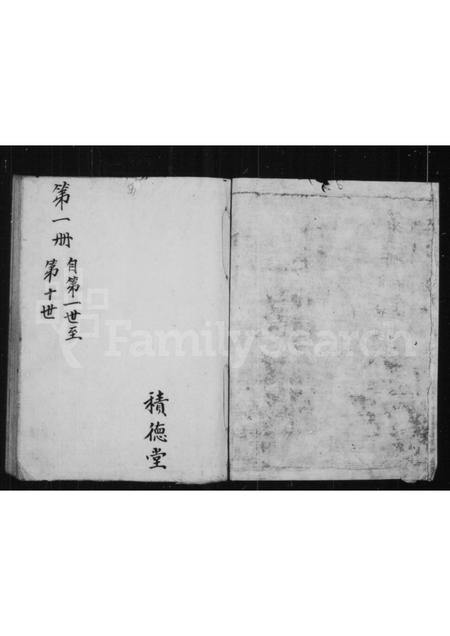 積德堂
第一册
自第一世至
第十世
FamilySearch